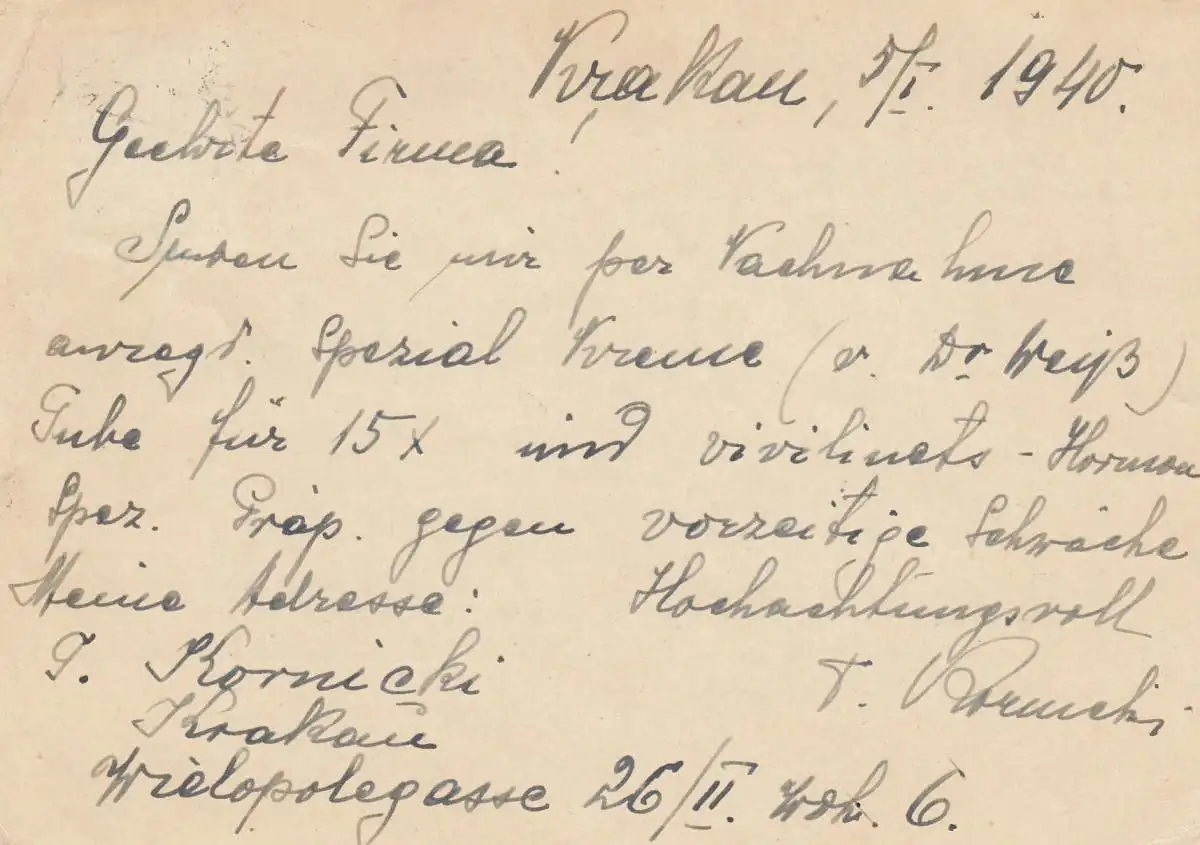 Krakau, 5/I. 1940.
Geehrte Firma!
Senden Sie mir per Nachnahme
anregd. Spezial Kreme (v. Dr Weiß)
Tube für 15x und vivilinets-Hormon
Spez. Präp. gegen vorzeitige Schwäche
Meine Adresse: Hochachtungsvoll
T. Kornicki T. Kornicki
Krakau
Wielopolegasse 26/II. Woh. 6.